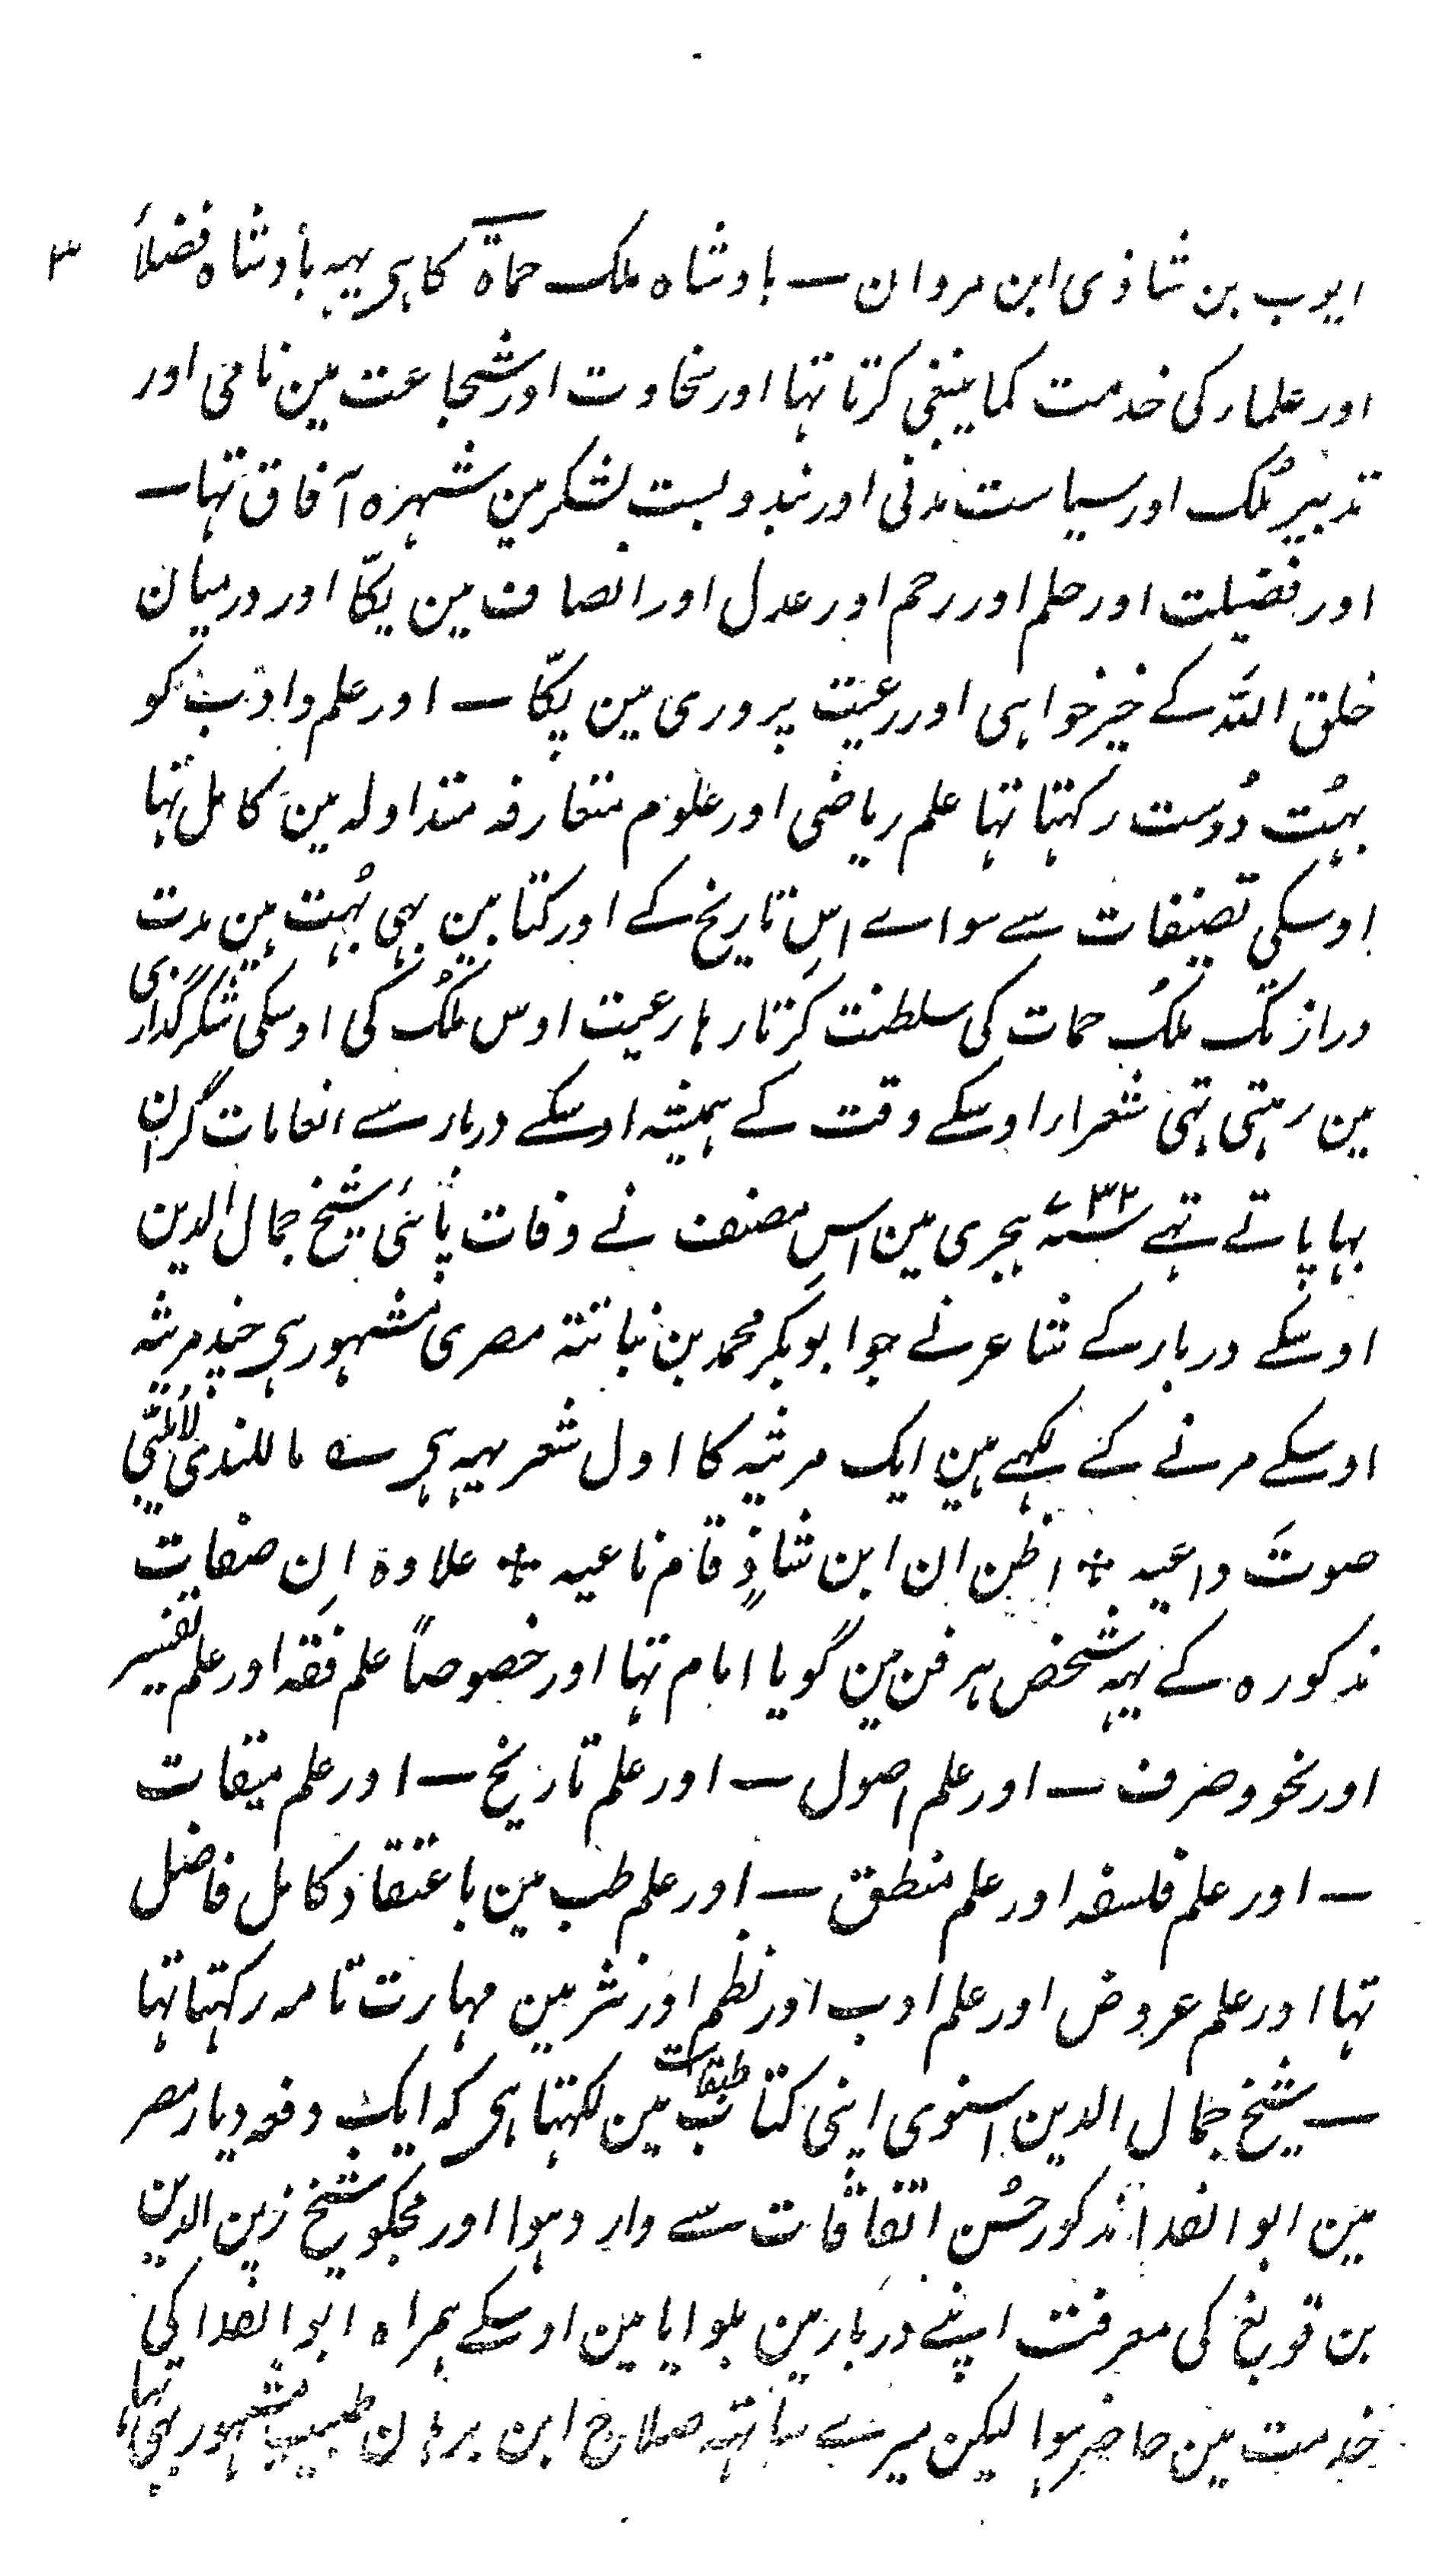 ۳
ایوب بن شاذی ابن مروان — بادشاہ ملک حماۃ کا ہی یہہ بادشاہ فضلاء
اور علماء کی خدمت کما ینبغی کرتا تہا اور سخاوت اور شجاعت مین نامی اور
تدبیر مُلک اور سیاست مدنی اور بندوبست لشکر مین شہرہ آفاق تہا —
اور فضیلت اور حلم اور رحم اور عدل اور انصاف مین یکتا اور درمیان
خلق اللہ کے خیر خواہی اور رعیت پروری مین پکّا — اور علم و ادب کو
بہُت دُوست رکہتا تہا علم ریاضی اور علوم متعارفہ متداولہ مین کامل تہا
اوسکی تصنیفات سے سواے اسِ تاریخ کے اور کتابین بہی بہُت ہین مدت
دراز تک ملکُ حمات کی سلطنت کرتا رہا رعیت اوس ملکُ کی اوسکی شکر گذاری
مین رہتی تہی شعراء اوسکے وقت کے ہمیشہ اوسکے دربار سے انعامات گران
بہا پاتے تہے سنہ ۷۳۲ ہجری مین اسِ مصنف نے وفات پائی شیخ جمال الدین
اوسکے دربار کے شاعر نے جو ابوبکر محمد بن نباتتہ مصری مشہور ہی چند مرثیہ
اوسکے مرنے کے لکہے ہین ایک مرثیہ کا اول شعر یہہ ہی ؎ ما للندی لا یلبّی
صوتَ داعیہ ÷ اظن ان ابن شاذٍ قام ناعیہ ÷ علاوہ انِ صفات
مذکورہ کے یہہ شخص ہر فن مین گویا امام تہا اور خصوصاً علم فقہ اور علم تفسیر
اور نحو و صرف — اور علم اصول — اور علم تاریخ — اور علم میقات
— اور علم فلسفہ اور علم منطق — اور علم طب مین باعتقاد کامل فاضل
تہا اور علم عروض اور علم ادب اور نظم اور نثر مین مہارت تامہ رکہتا تہا
— شیخ جمال الدین اسنوی اپنی کتاب طبقات مین لکہتا ہی کہ ایک دفعہ دیار مصر
مین ابو الفدا مذکور حُسن اتفاقات سے وارد ہوا اور مجکو شیخ زین الدین
بن قوبع کی معرفت اپنے دربار مین بلوایا مین اوسکے ہمراہ ابو الفدا کی
خدمت مین حاضر ہوا لیکن میرے ساتہہ صلاح ابن برہان طبیب مشہور بہی تہا